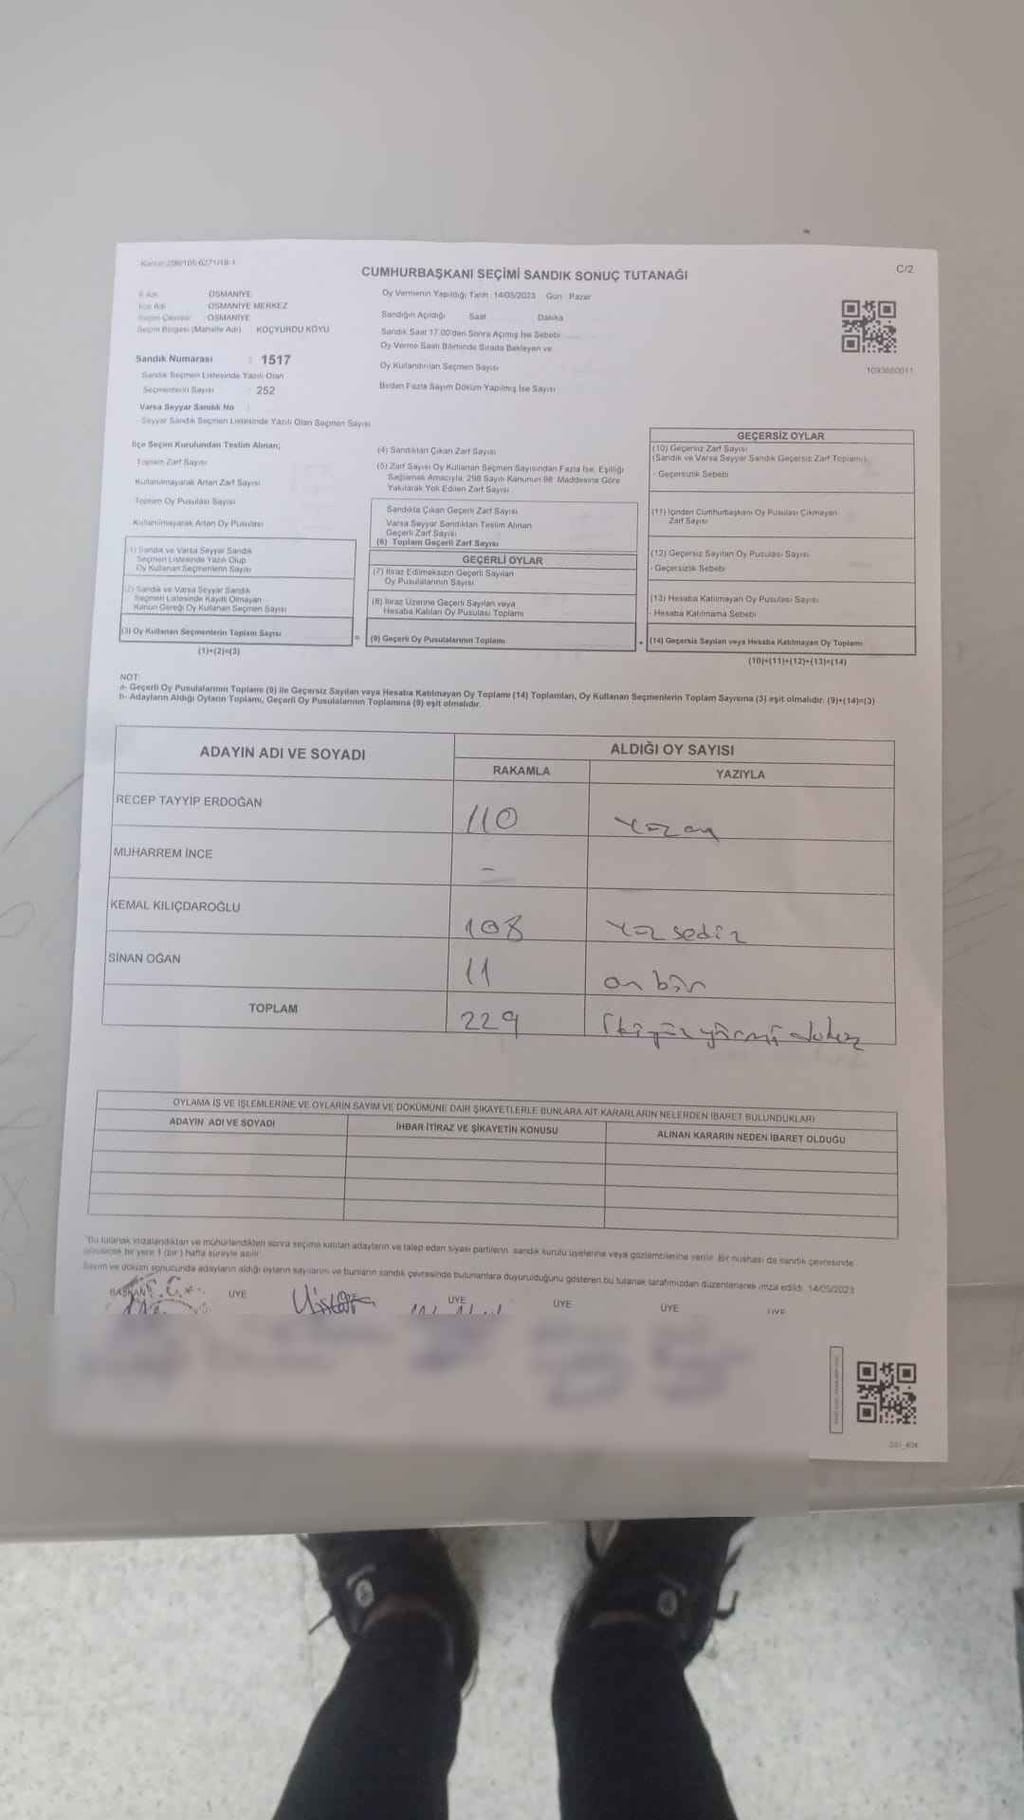 CUMHURBAŞKANI SEÇİMİ SANDIK SONUÇ TUTANAĞI
C/2
OSMANİYE
OSMANİYE MERKEZ
OSMANİYE
Seçim Bölgesi (Mahalle Adı) KOÇYURDU KÖYÜ
Sandık Numarası : 1517
Sandık Seçmen Listesinde Yazılı Olan
Seçmenlerin Sayısı : 252
Varsa Seyyar Sandık No
Seyyar Sandık Seçmen Listesinde Yazılı Olan Seçmen Sayısı
Oy Vermenin Yapıldığı Tarih : 14/05/2023 Gün : Pazar
Sandığın Açıldığı Saat Dakika
Sandık Saat 17.00'den Sonra Açılmış İse Sebebi
Oy Verme Saati Bitiminde Sırada Bekleyen ve
Oy Kullandırılan Seçmen Sayısı
Birden Fazla Sayım Döküm Yapılmış İse Sayısı
1093660011
İlçe Seçim Kurulundan Teslim Alınan;
Toplam Zarf Sayısı
Kullanılmayarak Artan Zarf Sayısı
Toplam Oy Pusulası Sayısı
Kullanılmayarak Artan Oy Pusulası
(1) Sandık ve Varsa Seyyar Sandık
Seçmen Listesinde Yazılı Olup
Oy Kullanan Seçmenlerin Sayısı
(2) Sandık ve Varsa Seyyar Sandık
Seçmen Listesinde Kayıtlı Olmayan
Kanun Gereği Oy Kullanan Seçmen Sayısı
(3) Oy Kullanan Seçmenlerin Toplam Sayısı
(1)+(2)=(3)
(4) Sandıktan Çıkan Zarf Sayısı
(5) Zarf Sayısı Oy Kullanan Seçmen Sayısından Fazla İse, Eşitliği
Sağlamak Amacıyla, 298 Sayılı Kanunun 98. Maddesine Göre
Yakılarak Yok Edilen Zarf Sayısı
Sandıkta Çıkan Geçerli Zarf Sayısı
Varsa Seyyar Sandıktan Teslim Alınan
Geçerli Zarf Sayısı
(6) Toplam Geçerli Zarf Sayısı
GEÇERLİ OYLAR
(7) İtiraz Edilmeksizin Geçerli Sayılan
Oy Pusulalarının Sayısı
(8) İtiraz Üzerine Geçerli Sayılan veya
Hesaba Katılan Oy Pusulası Toplamı
= (9) Geçerli Oy Pusulalarının Toplamı
GEÇERSİZ OYLAR
(10) Geçersiz Zarf Sayısı
(Sandık ve Varsa Seyyar Sandık Geçersiz Zarf Toplamı)
- Geçersizlik Sebebi
(11) İçinden Cumhurbaşkanı Oy Pusulası Çıkmayan
Zarf Sayısı
(12) Geçersiz Sayılan Oy Pusulası Sayısı
- Geçersizlik Sebebi
(13) Hesaba Katılmayan Oy Pusulası Sayısı
- Hesaba Katılmama Sebebi
+ (14) Geçersiz Sayılan veya Hesaba Katılmayan Oy Toplamı
(10)+(11)+(12)+(13)=(14)
NOT:
a- Geçerli Oy Pusulalarının Toplamı (9) ile Geçersiz Sayılan veya Hesaba Katılmayan Oy Toplamı (14) Toplamları, Oy Kullanan Seçmenlerin Toplam Sayısına (3) eşit olmalıdır. (9)+(14)=(3)
b- Adayların Aldığı Oyların Toplamı, Geçerli Oy Pusulalarının Toplamına (9) eşit olmalıdır.
ADAYIN ADI VE SOYADI
ALDIĞI OY SAYISI
RAKAMLA YAZIYLA
RECEP TAYYİP ERDOĞAN 110 yüz on
MUHARREM İNCE -
KEMAL KILIÇDAROĞLU 108 yüz sekiz
SİNAN OĞAN 11 on bir
TOPLAM 229 ikiyüz yirmi dokuz
OYLAMA İŞ VE İŞLEMLERİNE VE OYLARIN SAYIM VE DÖKÜMÜNE DAİR ŞİKAYETLERLE BUNLARA AİT KARARLARIN NELERDEN İBARET BULUNDUKLARI
ADAYIN ADI VE SOYADI İHBAR İTİRAZ VE ŞİKAYETİN KONUSU ALINAN KARARIN NEDEN İBARET OLDUĞU
Bu tutanak imzalandıktan ve mühürlendikten sonra seçime katılan adayların ve talep eden siyasi partilerin sandık kurulu üyelerine veya gözlemcilerine verilir. Bir nüshası da sandık çevresinde
görülecek bir yere 1 (bir) hafta süreyle asılır.
Sayım ve döküm sonucunda adayların aldığı oyların sayılarını ve bunların sandık çevresinde bulunanlara duyurulduğunu gösteren bu tutanak tarafımızdan düzenlenerek imza edildi. 14/05/2023
BAŞKAN ÜYE ÜYE ÜYE ÜYE ÜYE